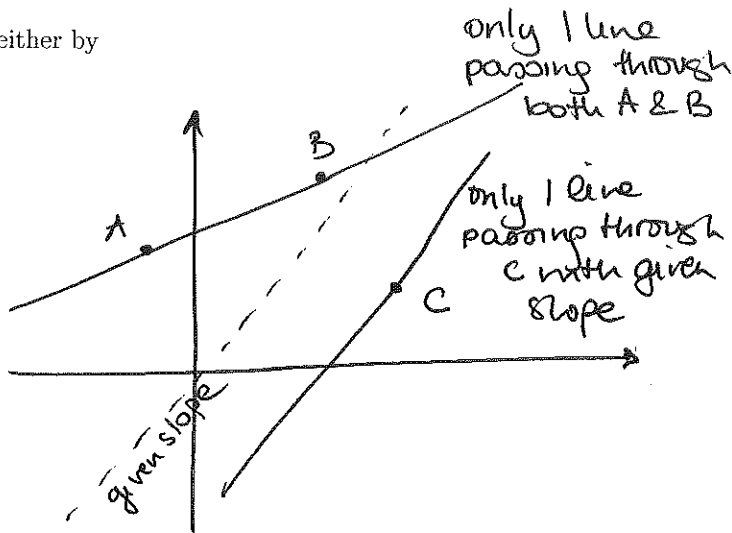 either by
only 1 line
passing through
both A & B
B
A
only 1 line
passing through
C with given
slope
C
given slope